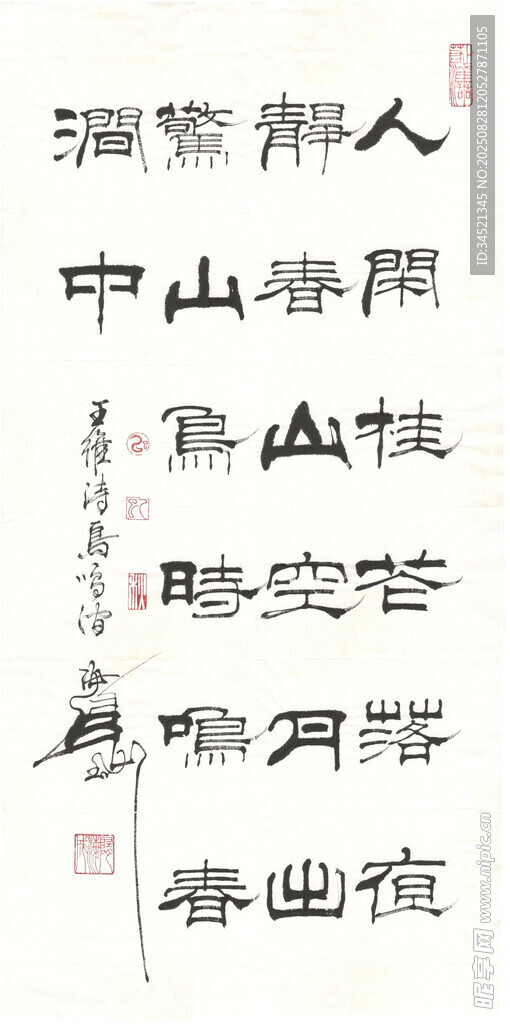 人閑桂花落夜
靜春山空月出
驚山鳥時鳴春
澗中
王維詩鳥鳴澗
ID:34521345 NO:20250828120527871105
昵享网 www.nipic.cn